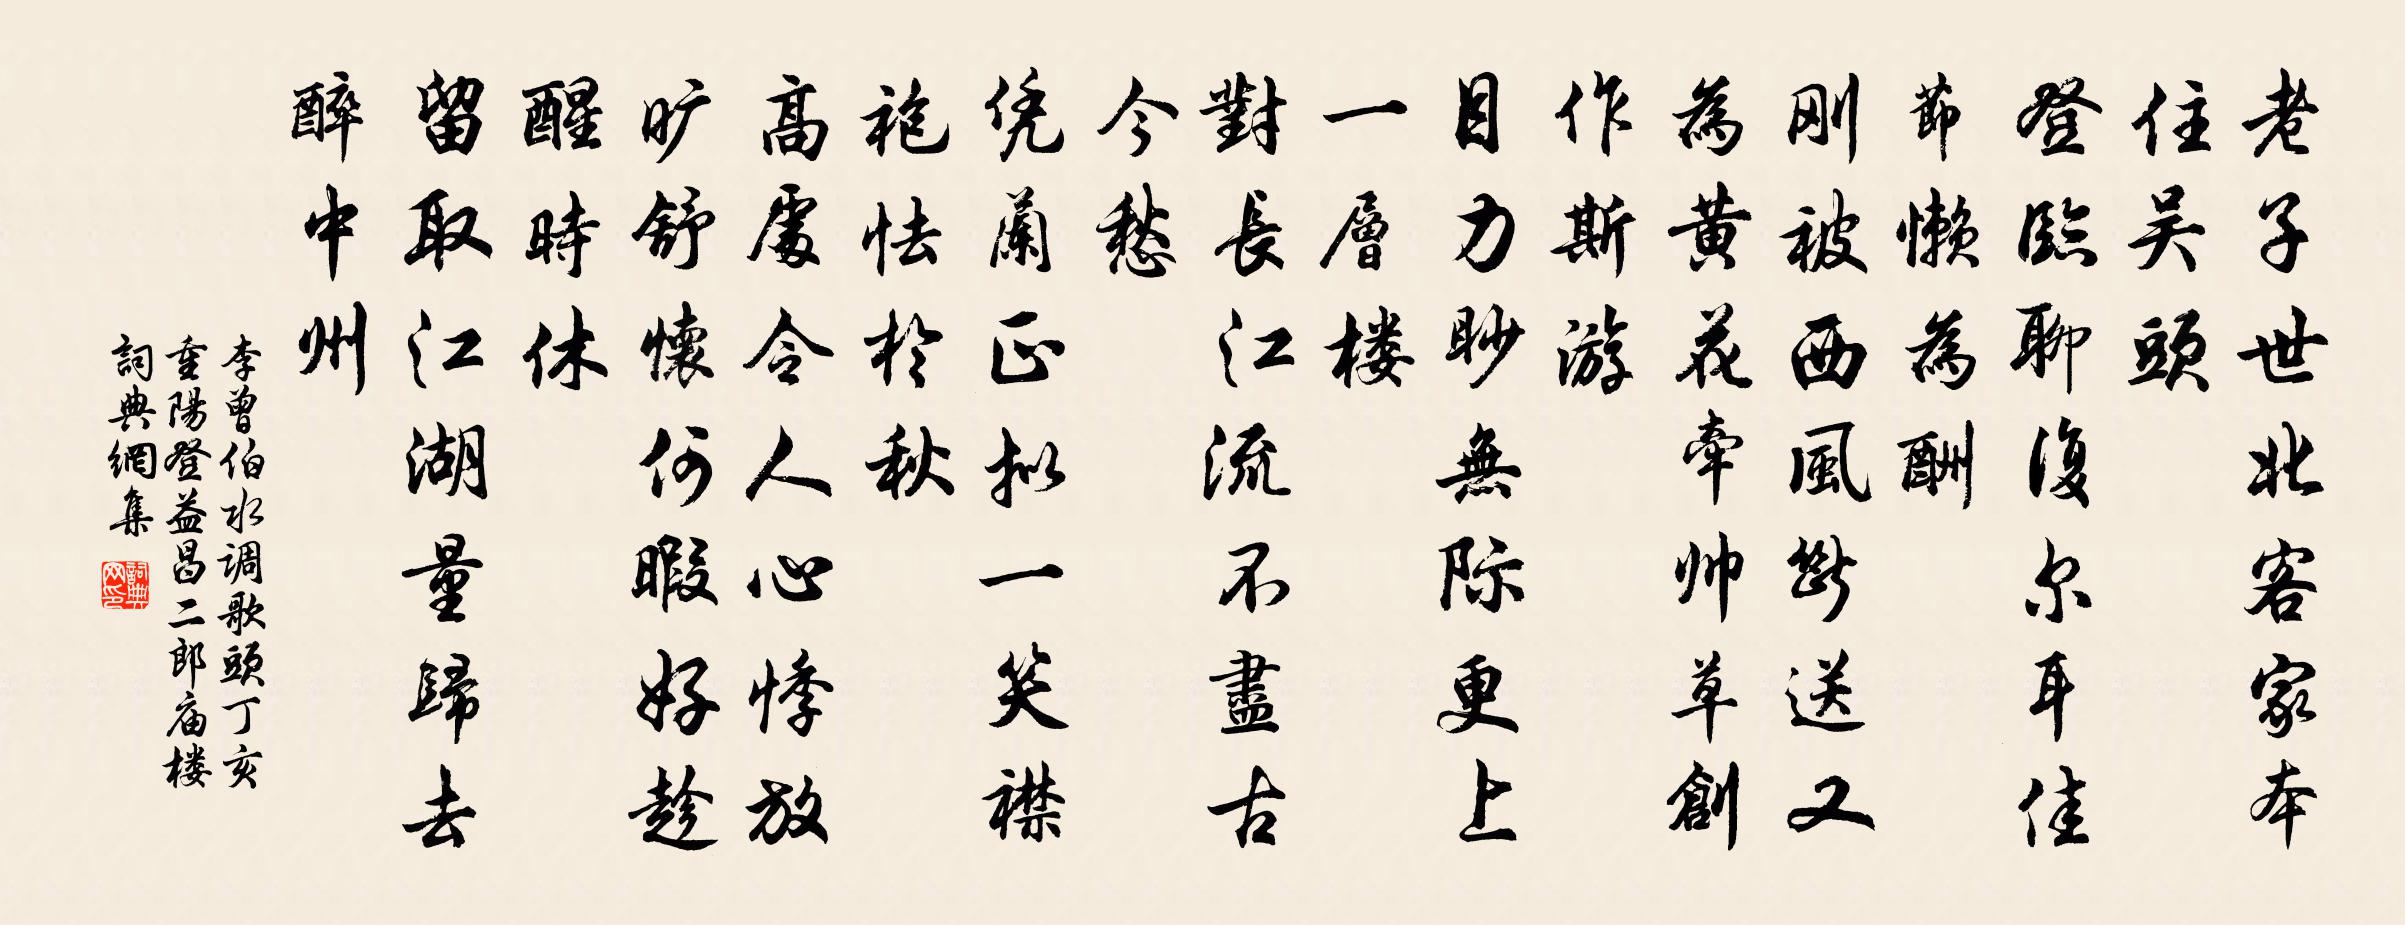 老子世北客家本
住吴頭
登臨聊復尔耳佳
節懒為酬
刚被西風断送又
為黄花牵帅草創
作斯游
目力眇無际更上
一層楼
對長江流不盡古
今愁
凭蘭正拟一笑襟
袍怯於秋
高處令人心悸放
旷舒懷何暇好趁
醒時休
留取江湖量歸去
醉中州
李曾伯水调歌頭丁亥
重陽登益昌二郎庙楼
詞典網集
詞典网印